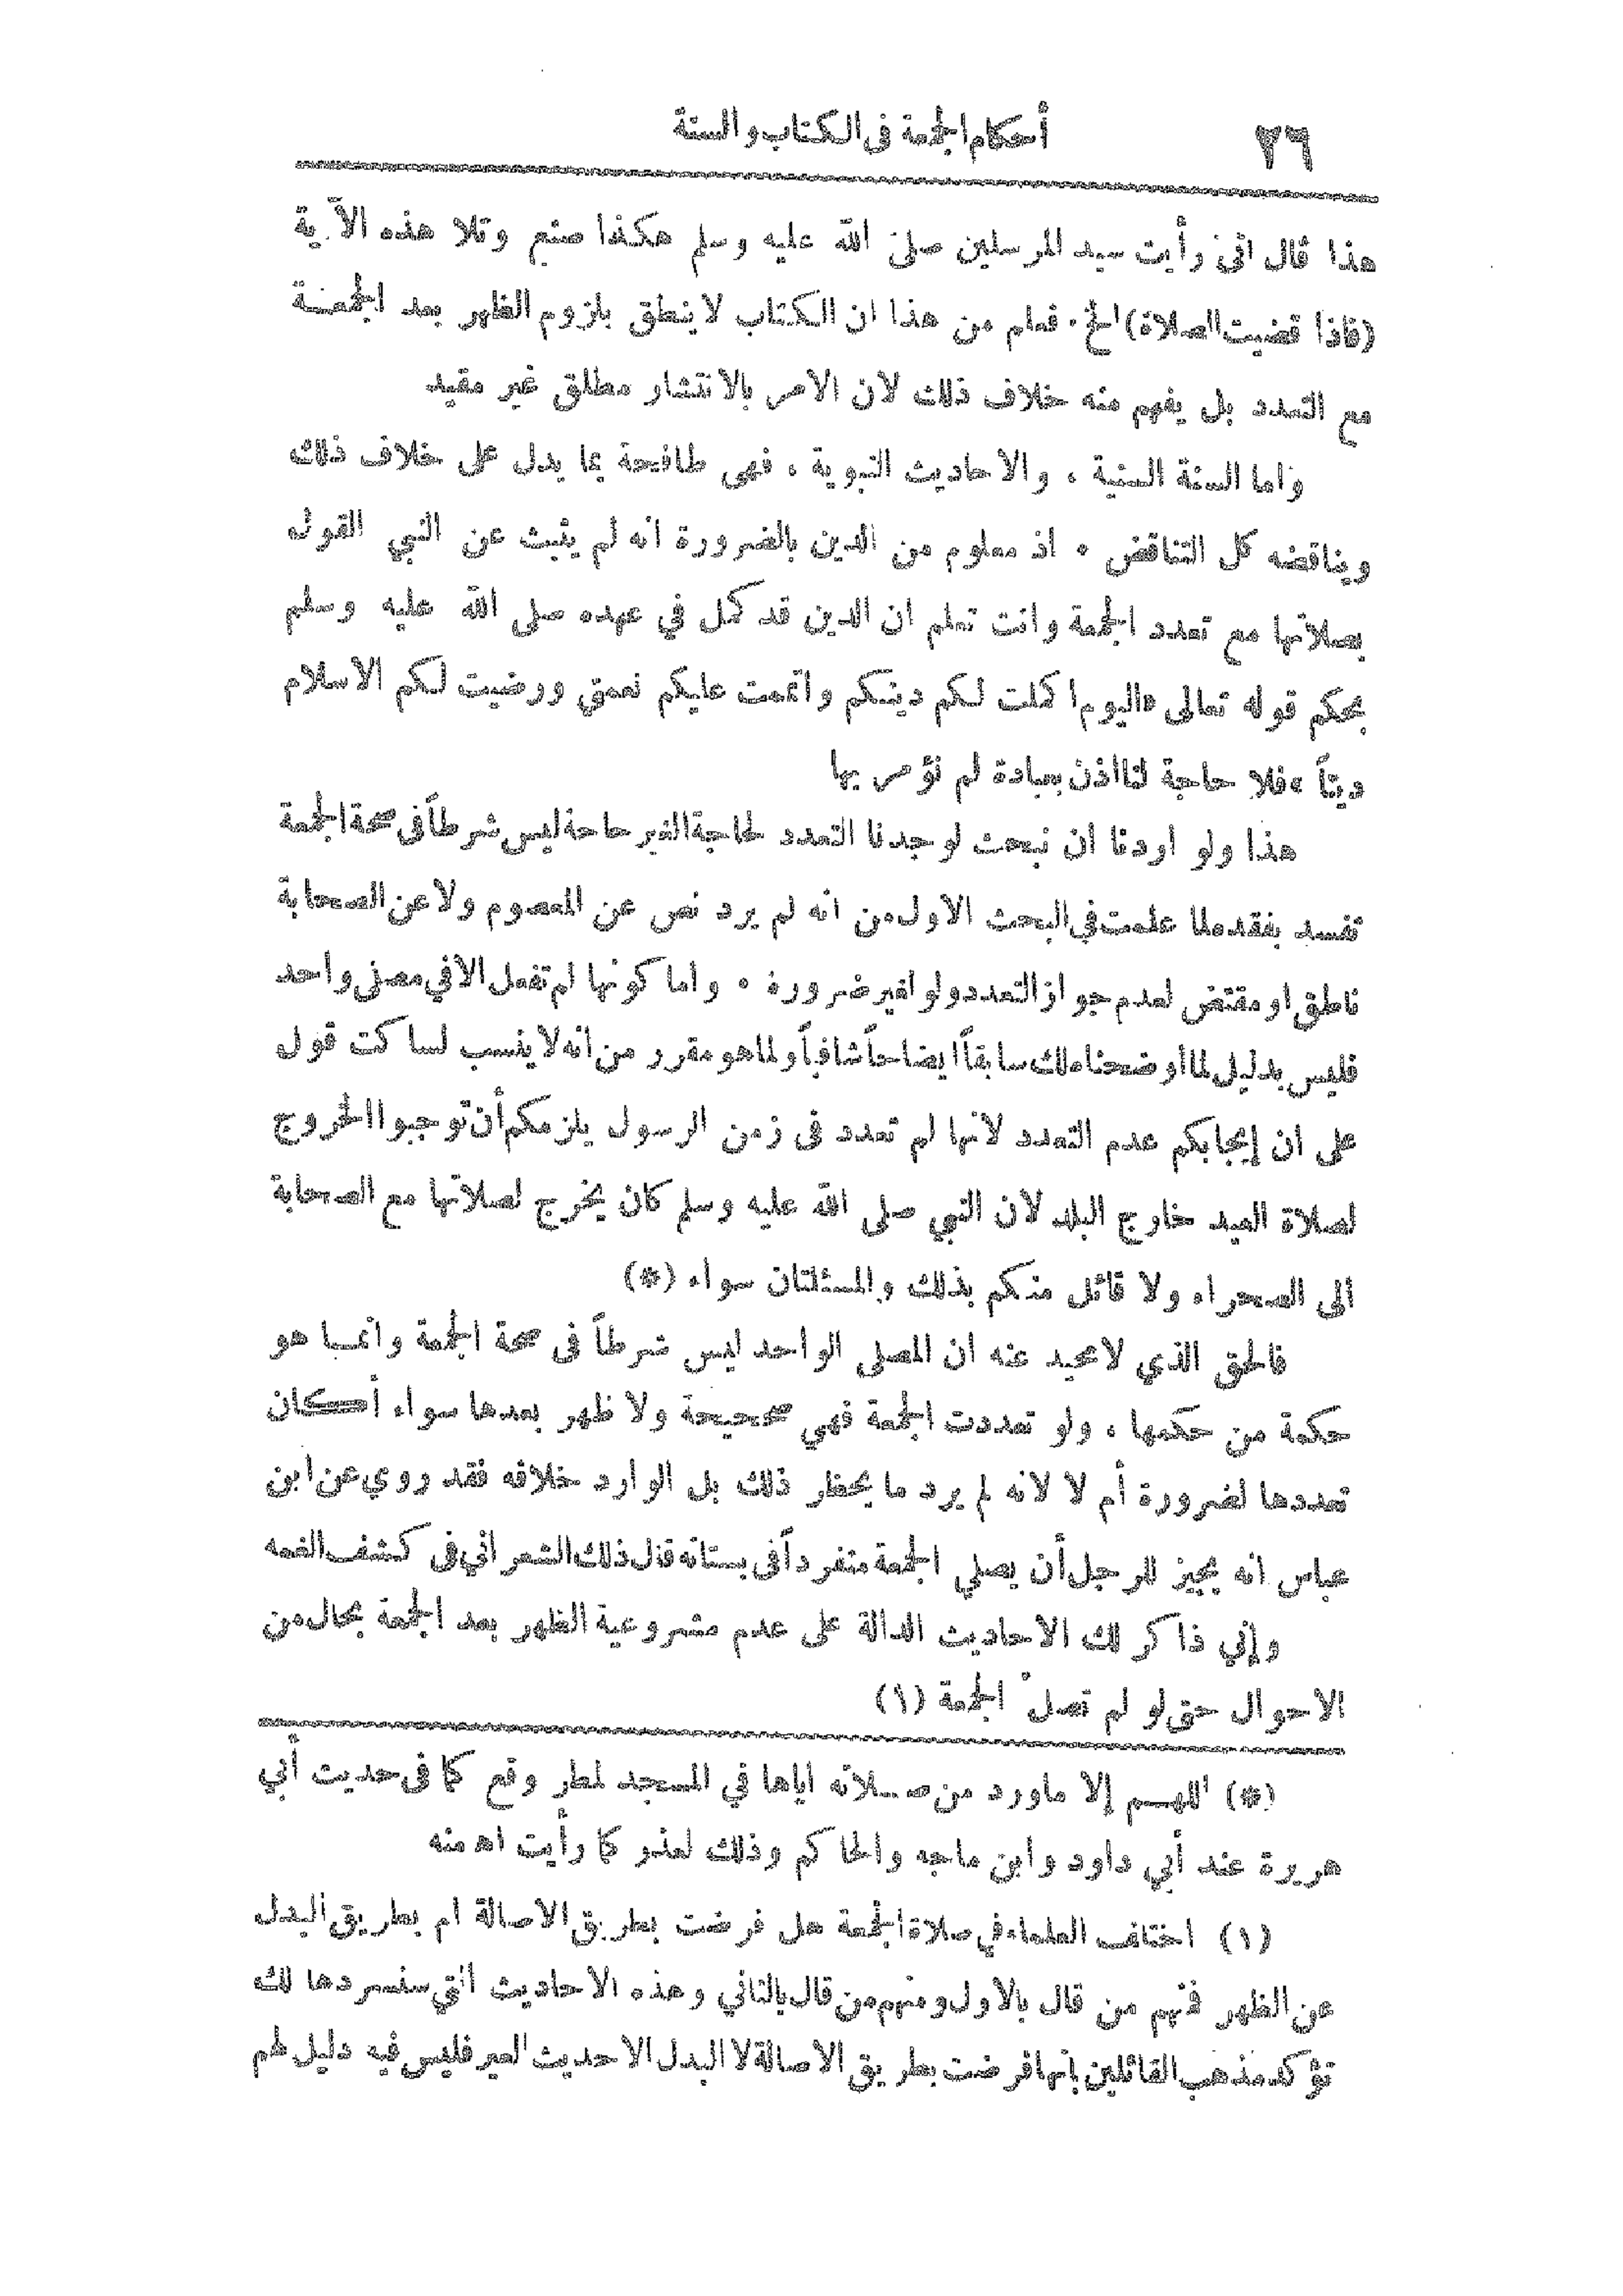 ٢٦
أحكام الجمعة في الكتاب والسنة
هذا قال اني رأيت سيد المرسلين صلى الله عليه وسلم هكذا صنع وتلا هذه الآية
(فاذا قضيت الصلاة) الخ. فعلم من هذا ان الكتاب لا ينطق بلزوم الظهر بعد الجمعة
مع التعدد بل يفهم منه خلاف ذلك لان الامر بالانتشار مطلق غير مقيد
واما السنة السنية ، والاحاديث النبوية ، فهى طافحة بما يدل على خلاف ذلك
ويناقضه كل التناقض . اذ معلوم من الدين بالضرورة انه لم يثبت عن النبي القول
بصلاتها مع تعدد الجمعة وانت تعلم ان الدين قد كمل في عهده صلى الله عليه وسلم
بحكم قوله تعالى «اليوم اكملت لكم دينكم واتممت عليكم نعمتي ورضيت لكم الاسلام
ديناً» فلا حاجة لنا اذن بعبادة لم نؤمر بها
هذا ولو اردنا ان نبحث لوجدنا التعدد لحاجة الغير حاجة ليس شرطاً فى صحة الجمعة
تفسد بفقده لما علمت في البحث الاول من انه لم يرد نص عن المعصوم ولا عن الصحابة
ناطق او مقتض لعدم جواز التعدد ولو لغير ضرورة . واما كونها لم تفعل الا في مصلى واحد
فليس بدليل لما أوضحناه لك سابقاً ايضاحاً شافياً ولما هو مقرر من انه لا ينسب لساكت قول
على ان إيجابكم عدم التعدد لانها لم تعدد فى زمن الرسول يلزمكم أن توجبوا الخروج
لصلاة العيد خارج البلد لان النبي صلى الله عليه وسلم كان يخرج لصلاتها مع الصحابة
الى الصحراء ولا قائل منكم بذلك والمسئلتان سواء (*)
فالحق الذي لا محيد عنه ان المصلى الواحد ليس شرطاً فى صحة الجمعة وانمـا هو
حكمة من حكمها ، ولو تعددت الجمعة فهي صحيحة ولا ظهر بعدها سواء أكان
تعددها لضرورة أم لا لانه لم يرد ما يحظر ذلك بل الوارد خلافه فقد روي عن ابن
عباس انه يجيز للرجل أن يصلي الجمعة منفرداً فى بستانه قال ذلك الشعراني فى كشف الغمه
وإني ذاكر لك الاحاديث الدالة على عدم مشروعية الظهر بعد الجمعة بحال من
الاحوال حتى لو لم تصلّ الجمعة (١)
(*) اللهـم إلا ماورد من صـلاته اياها في المسجد لمطر وقع كما فى حديث أبي
هريرة عند أبي داود وابن ماجه والحاكم وذلك لعذر كما رأيت اه منه
(١) اختلف العلماء في صلاة الجمعة هل فرضت بطريق الاصالة ام بطريق البدل
عن الظهر فمنهم من قال بالاول ومنهم من قال بالثاني وهذه الاحاديث التي سنسردها لك
تؤكد مذهب القائلين بانها فرضت بطريق الاصالة لا البدل الا حديث العير فليس فيه دليل لهم